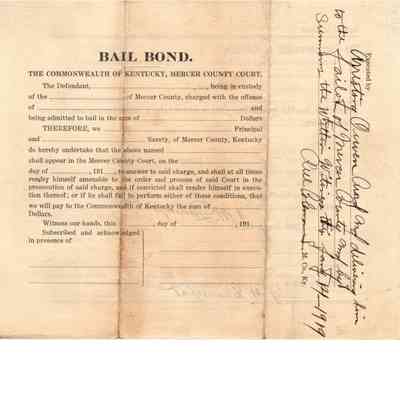 BAIL BOND.
THE COMMONWEALTH OF KENTUCKY, MERCER COUNTY COURT.
The Defendant, , being in custody
of the of Mercer County, charged with the offense
of and
being admitted to bail in the sum of Dollars
THEREFORE, we Principal
and Surety, of Mercer County, Kentucky
do hereby undertake that the above named
shall appear in the Mercer County Court, on the
day of , 191 , to answer to said charge, and shall at all times
render himself amenable to the order and process of said Court in the
prosecution of said charge, and if convicted shall render himself in execu-
tion thereof; or if he shall fail to perform either of these conditions, that
we will pay to the Commonwealth of Kentucky the sum of
Dollars.
Witness our hands, this , day of , 191
Subscribed and acknowledged
in presence of
Executed by
arresting Owen and delivering him
to the Jailer of Mercer County and by
Summons the Within this Jany 14-1919
M. Co. Ky.